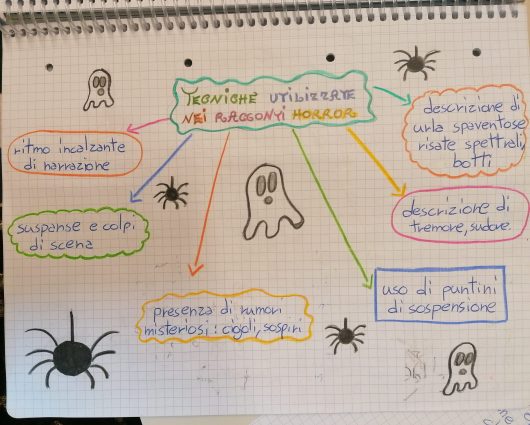 TECNICHE UTILIZZATE
NEI RACCONTI HORROR
descrizione di
urla spaventose
risate spettrali,
botti
ritmo incalzante
di narrazione
descrizione di
tremore, sudore
suspanse e colpi
di scena
uso di puntini
di sospensione
presenza di rumori
misteriosi: cigolii, sospiri